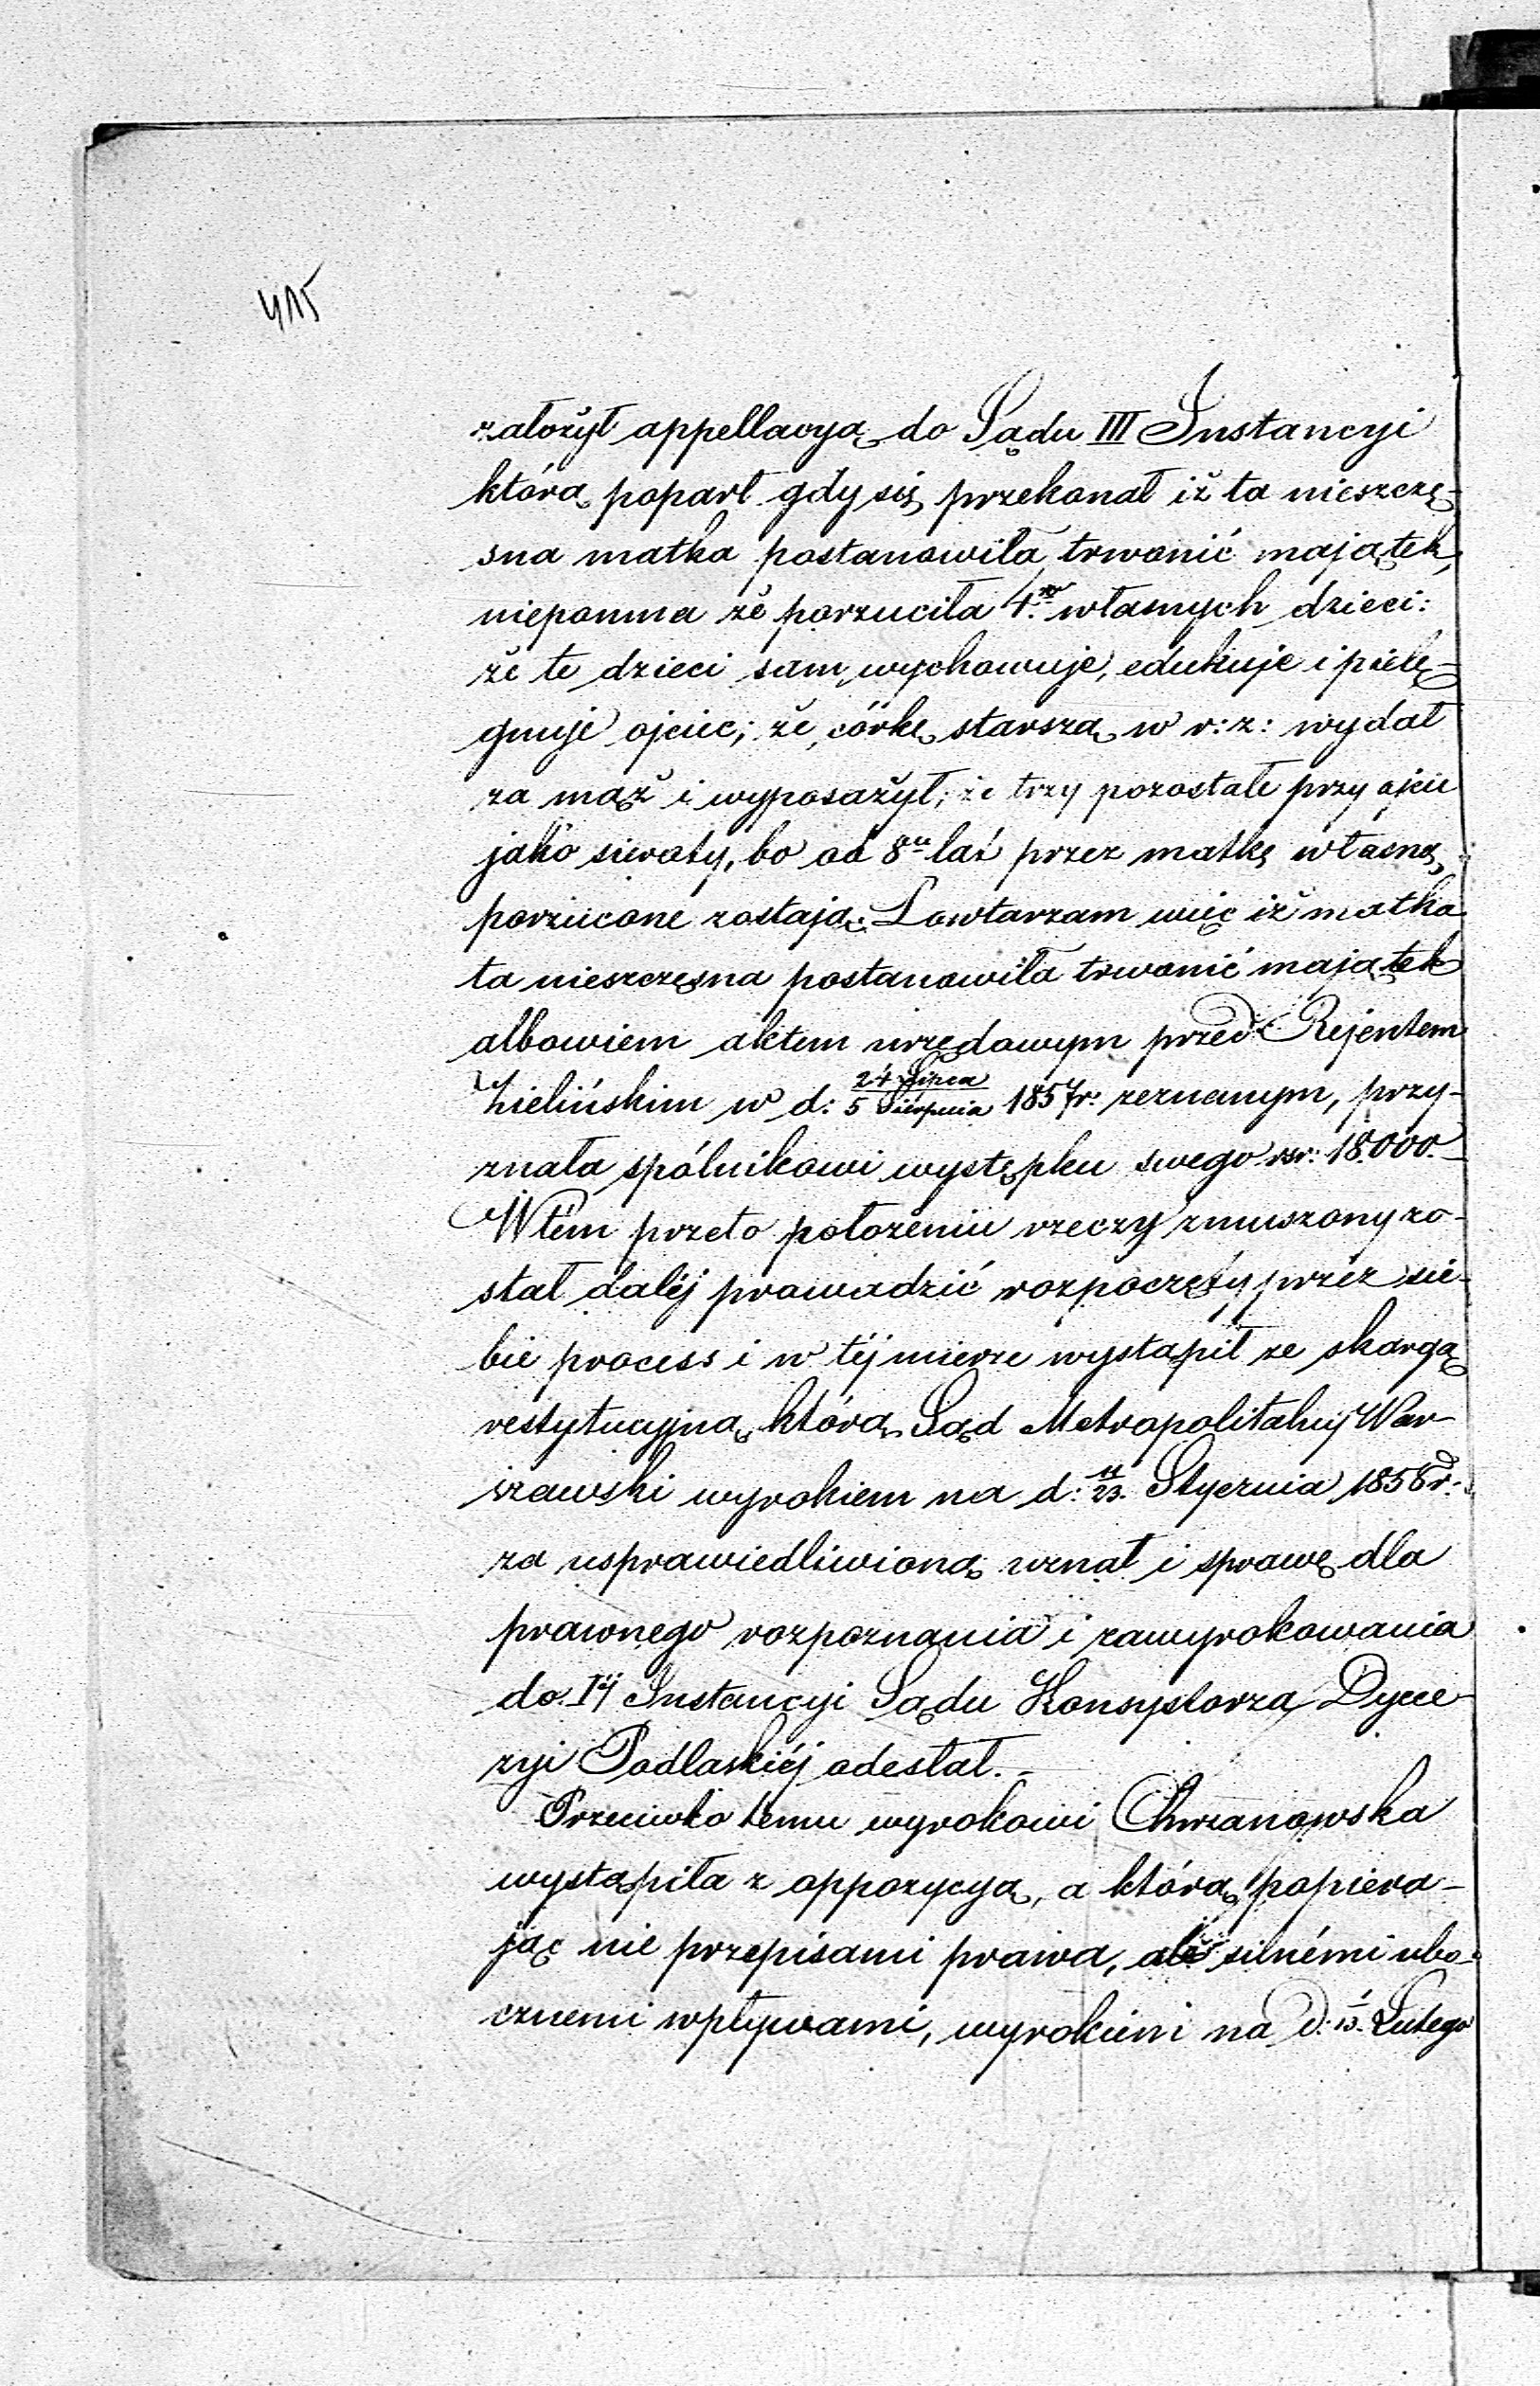 415
założył appellacyą do Sądu III Instancyi
którą poparł gdy się przekonał iż ta nieszczę-
sna matka postanowiła trwonić majątek,
niepomna że porzuciła 4.ro własnych dzieci:
że te dzieci sam wychowuje, edukuje i pielę-
gnuje ojciec; że córkę starszą w r: z: wydał
za mąż i wyposażył; że trzy pozostałe przy ojcu
jako sieroty, bo od 8u lat przez matkę własną
porzucone zostają. Powtarzam więc iż matka
ta nieszczęsna postanowiła trwonić majątek
albowiem aktem urzędowym przed Rejentem
Zielińskim w d: 24 Lipca/5 Sierpnia 1857r: zeznanym, przy-
znała spólnikowi występku swego rsr: 18.000.—
W tém przeto położeniu rzeczy zmuszony zo-
stał daléj prowadzić rozpoczęty przez sie-
bie process i w téj mierze wystąpił ze skargą
restytucyjną, którą Sąd Metropolitalny War-
szawski wyrokiem na d: 11/23. Stycznia 1858 r:
za usprawiedliwioną uznał i sprawę dla
prawnego rozpoznania i zawyrokowania
do Iéj Instancyi Sądu Konsystorza Dyece-
zyi Podlaskiéj odesłał.—
Przeciwko temu wyrokowi Chrzanowska
wystąpiła z oppozycyą, a którą popiera-
jąc nie przepisami prawa, ale silnémi ubo-
cznemi wpływami, wyrokiem na d: 1/13. Lutego